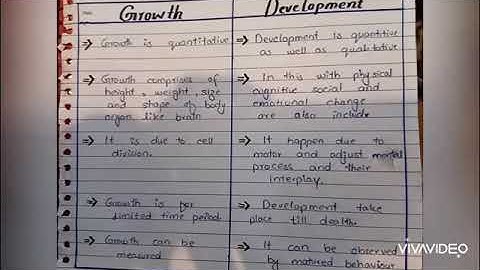 Growth
⇒ Growth is quantitative
⇒ Growth comprises of
height, weight, size
and shape of body
organ, like brain
⇒ It is due to cell
division.
⇒ Growth is for
limited time period.
⇒ Growth can be
measured
Development
⇒ Development is quantitive
as well as qualitative
⇒ In this with physical
cognitive social and
emotional change
are also include
⇒ It happen due to
motor and adjust mental
process and their
interplay.
⇒ Development take
place till death.
⇒ It can be observed
by matured behaviour
VIVAVIDEO